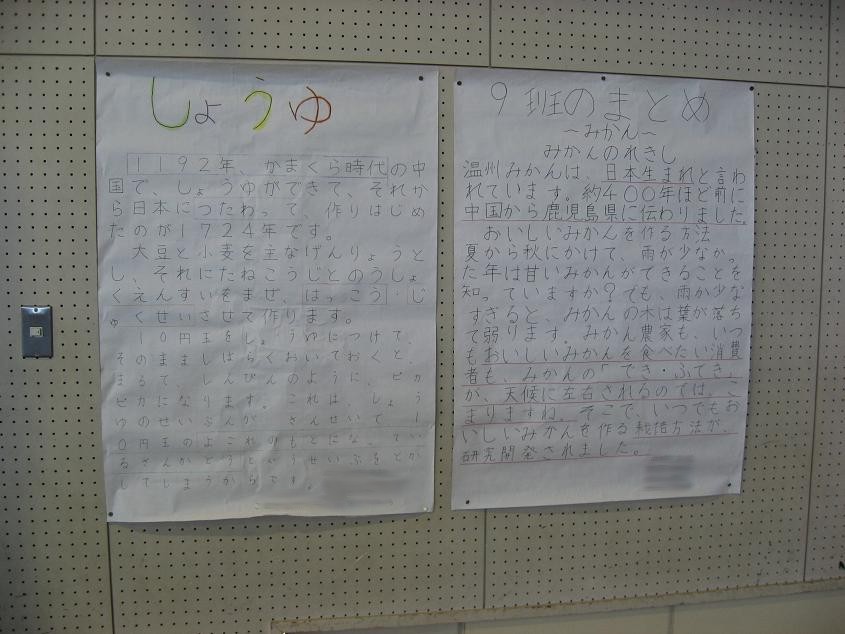 しょうゆ
1192年、かまくら時代の中
国で、しょうゆができて、それか
ら日本につたわって、作りはじめ
たのが1724年です。
大豆と小麦を主なげんりょうと
し、それにたねこうじとのうしょ
くえんすいをまぜ、はっこう・じ
ゅくせいさせて作ります。
10円玉をしょうゆにつけて、
そのまましばらくおいておくと、
まるで、しんぴんのように、ピカ
ピカになります。これは、しょう
ゆのせいぶんが、さんせいで、1
0円玉のよごれのもとになってい
るさんかどうというせいぶんをとか
してしまうからです。
9班のまとめ
〜みかん〜
みかんのれきし
温州みかんは、日本生まれと言わ
れています。約400年ほど前に
中国から鹿児島県に伝わりました。
おいしいみかんを作る方法
夏から秋にかけて、雨が少なかっ
た年は甘いみかんができることを
知っていますか?でも、雨が少な
すぎると、みかんの木は葉が落ち
て弱ります。みかん農家も、いつ
もおいしいみかんを食べたい消費
者も、みかんの「でき・ふでき」
が、天候に左右されるのでは、こ
まりますね。そこで、いつでもお
いしいみかんを作る栽培方法が、
研究開発されました。